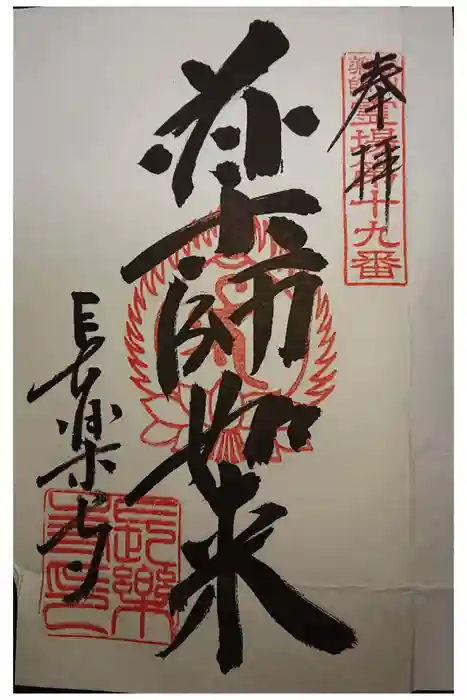 奉拝
霊場第十九番
薬師如来
長楽寺